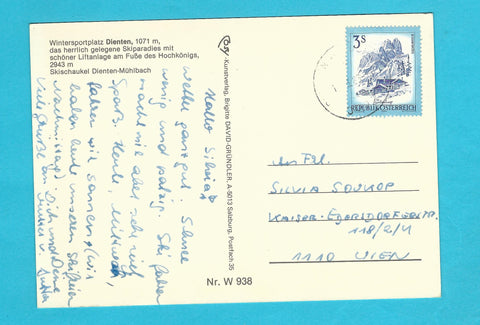 Wintersportplatz Dienten, 1071 m,
das herrlich gelegene Skiparadies mit
schöner Liftanlage am Fuße des Hochkönigs,
2943 m
Skischaukel Dienten-Mühlbach
Kunstverlag, Brigitte DAVID-GRÜNDLER, A-5013 Salzburg, Postfach 35
Nr. W 938
3 S
REPUBLIK ÖSTERREICH
Hallo Silvia!
Wetter ganz gut! Schnee
wenig und patzig. Ski fahren
macht mir aber sehr viel
Spaß. Heute, Mittwoch
fahren wir
haben heute unseren Skifreien
Nachmittag). Dich und Deine
Viele Grüße
An Frl.
SILVIA SOUKUP
KAISER-EBERSDORFERSTR.
118/2/4
1110 WIEN